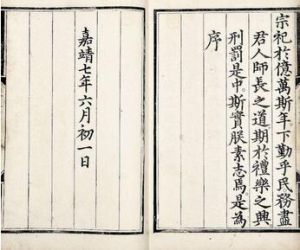 宗祀於億萬斯年下勤乎民務盡
君人師長之道期於禮樂之興
刑罰是中斯實朕素志焉是為
序
嘉靖七年六月初一日